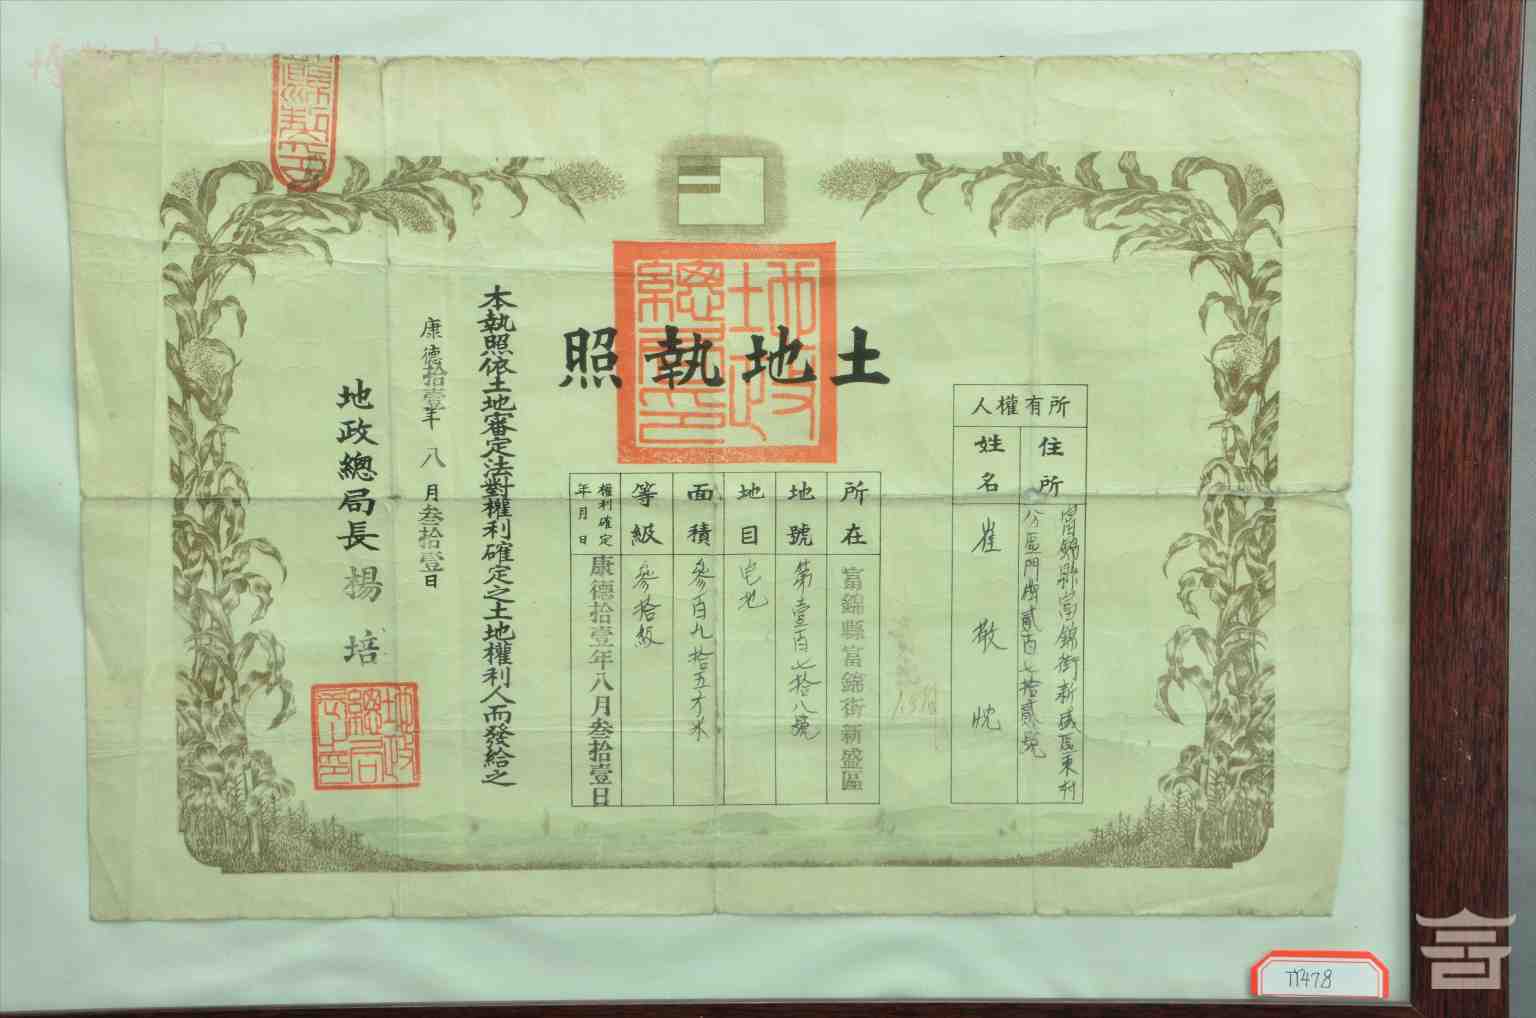 土地執照
所有權人
住所
富錦縣富錦街新盛區東利
分區門牌貳百七拾貳號
姓名
崔敬忱
所在
富錦縣富錦街新盛區
地號
第壹百七拾八號
地目
宅地
面積
參百九拾五方米
等級
參拾級
權利確定年月日
康德拾壹年八月叁拾壹日
本執照依土地審定法對權利確定之土地權利人而發給之
康德拾壹年八月叁拾壹日
地政總局長 楊培
地政總局之印